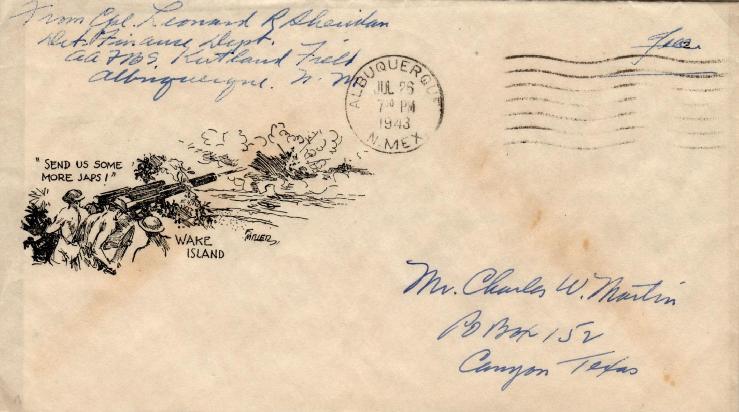 From Cpl. Leonard R Sheridan
Det. Finance Dept.
AAFBS. Kirtland Field
Albuquerque. N. M
Free
ALBUQUERQUE
JUL 26
7 PM
1943
N. MEX.
"SEND US SOME
MORE JAPS!"
WAKE
ISLAND
Mr. Charles W. Martin
PO Box 152
Canyon Texas